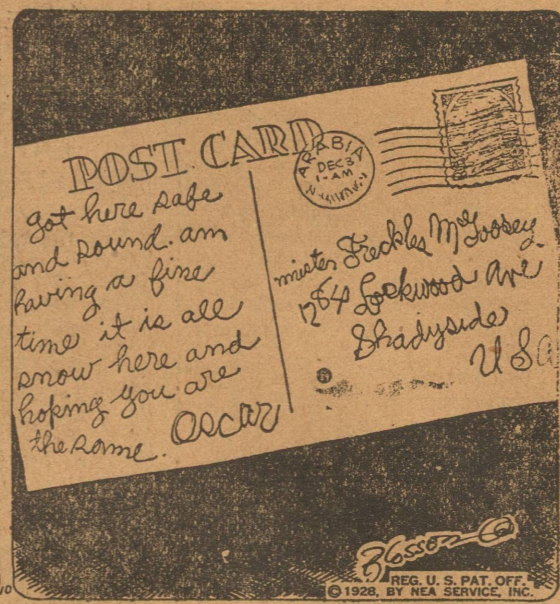 POST CARD
ARABIA
DEC 3
1-AM
got here safe
and sound. am
having a fine
time it is all
snow here and
hoping you are
the same.
Oscar
mister Freckles McGoosey
1264 Lockwood Ave
Shadyside
U S a
Blosser
REG. U. S. PAT. OFF.
© 1928, BY NEA SERVICE, INC.